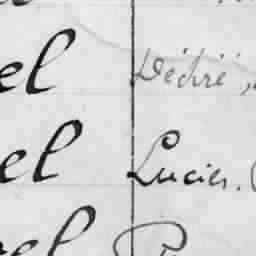 el Désiré,
el Lucien.
el